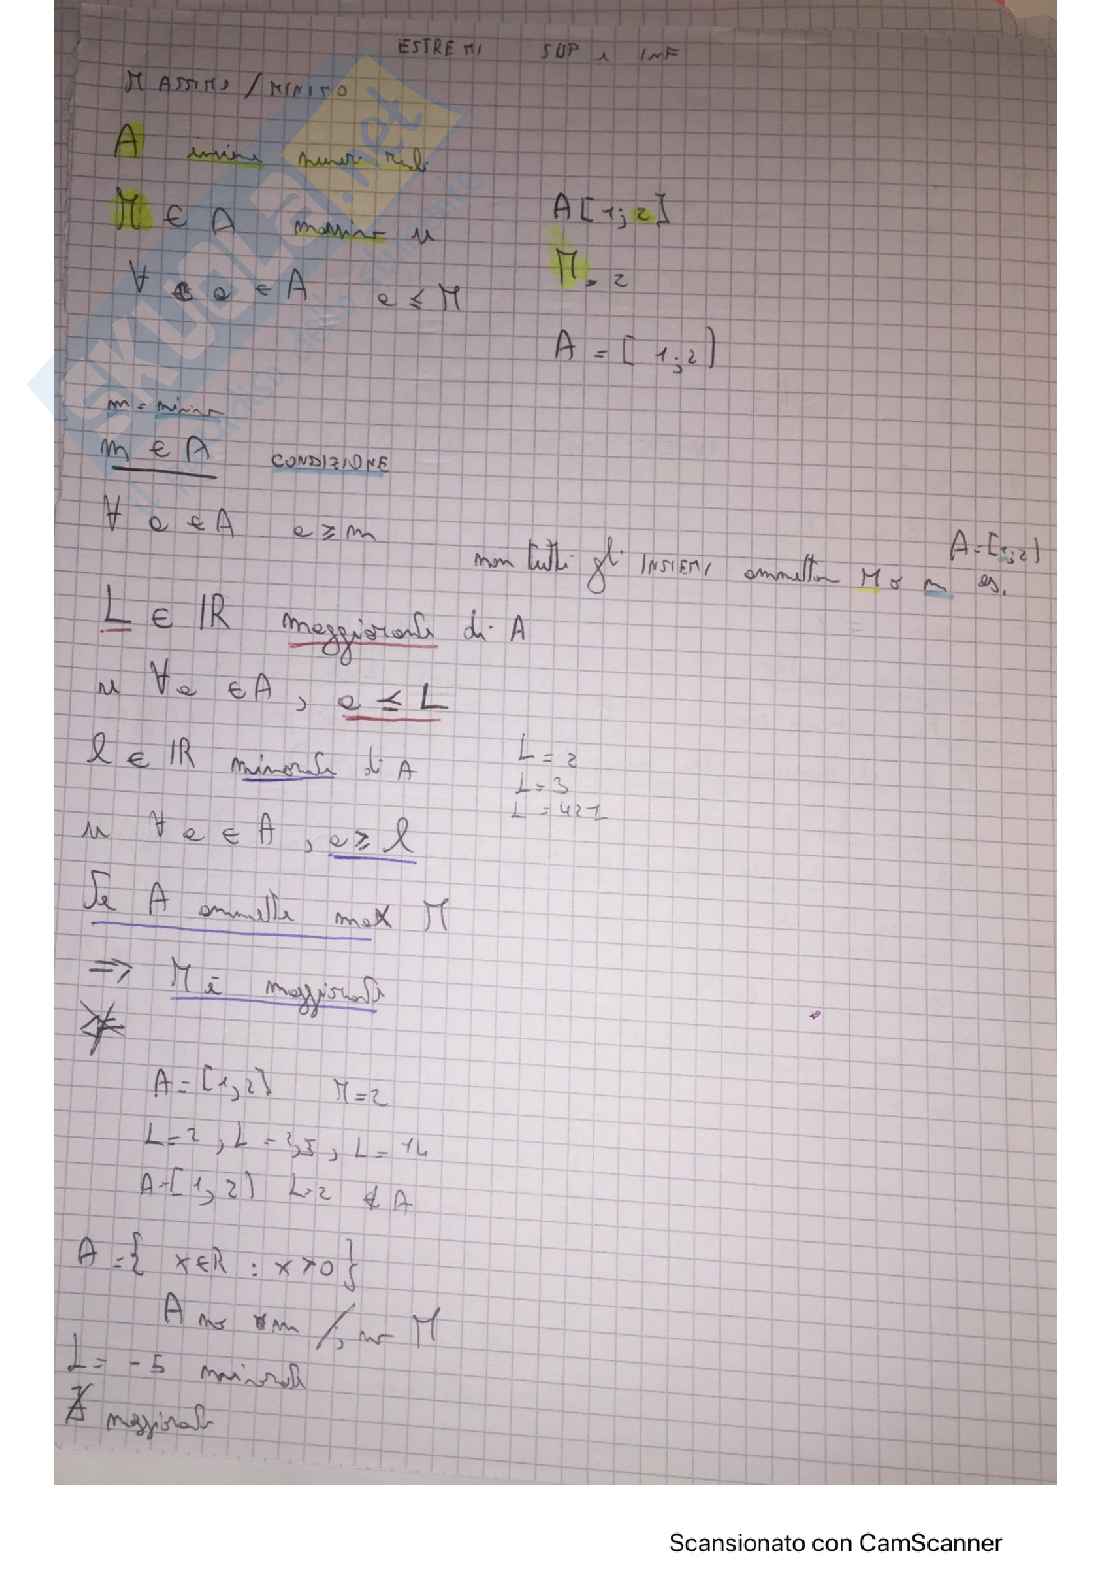 ESTREMI SUP e INF
MASSIMO / MINIMO
A insieme numeri reali
M ∈ A massimo se
A [1; 2]
∀ a ∈ A a ≤ M
M = 2
A = [1; 2)
m = minimo
m ∈ A CONDIZIONE
∀ a ∈ A a ≥ m
non tutti gli INSIEMI ammettono M o m es. A = [1; 2)
L ∈ IR maggiorante di A
se ∀ a ∈ A, a ≤ L
l ∈ IR minorante di A
L = 2
L = 3
L = 421
se ∀ a ∈ A, a ≥ l
Se A ammette max M
=> M è maggiorante
A = [1, 2] M = 2
L = 2, L = 3,5, L = 14
A = [1, 2) L = 2 ∉ A
A = { x ∈ R : x > 0 }
A no m /; no M
L = -5 minorante
∄ maggiorante
Scansionato con CamScanner
SKUOLA.net